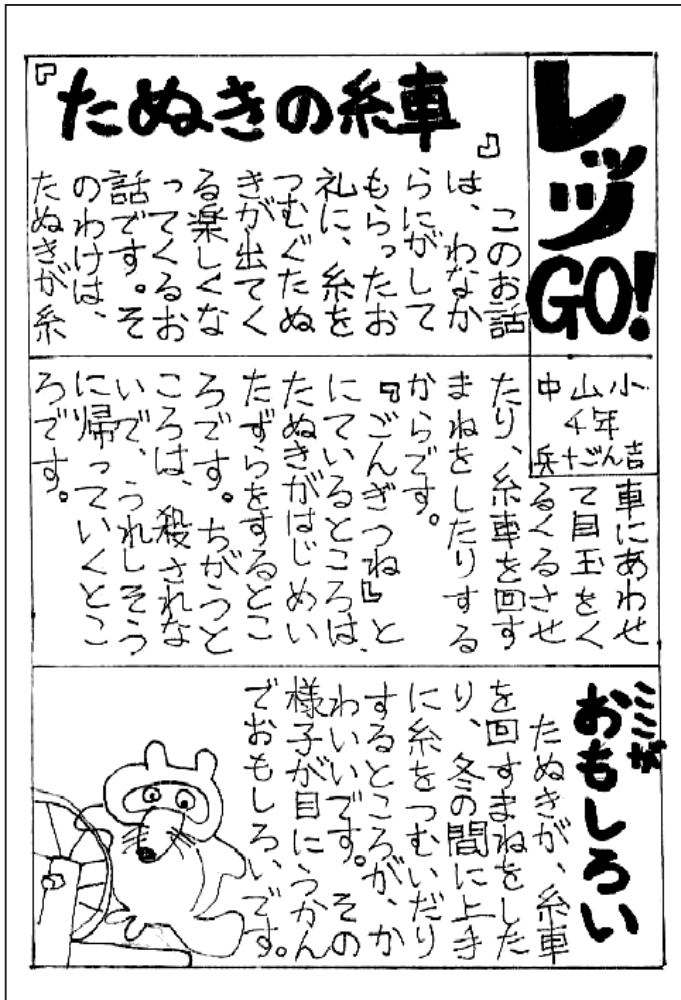 レッツGO!
『たぬきの糸車』
このお話
は、わなか
らにがして
もらったお
礼に、糸を
つむぐたぬ
きが出てく
る楽しくな
ってくるお
話です。そ
のわけは、
たぬきが糸
中山小
4年
兵十ごん吉
車にあわせ
て目玉をく
るくるさせ
たり、糸車を回す
まねをしたりする
からです。
『ごんぎつね』と
にているところは、
たぬきがはじめい
たずらをするとこ
ろです。ちがうと
ころは、殺されな
いで、うれしそう
に帰っていくとこ
ろです。
ここがおもしろい
たぬきが、糸車
を回すまねをした
り、冬の間に上手
に糸をつむいだり
するところが、か
わいいです。その
様子が目にうかん
でおもしろいです。